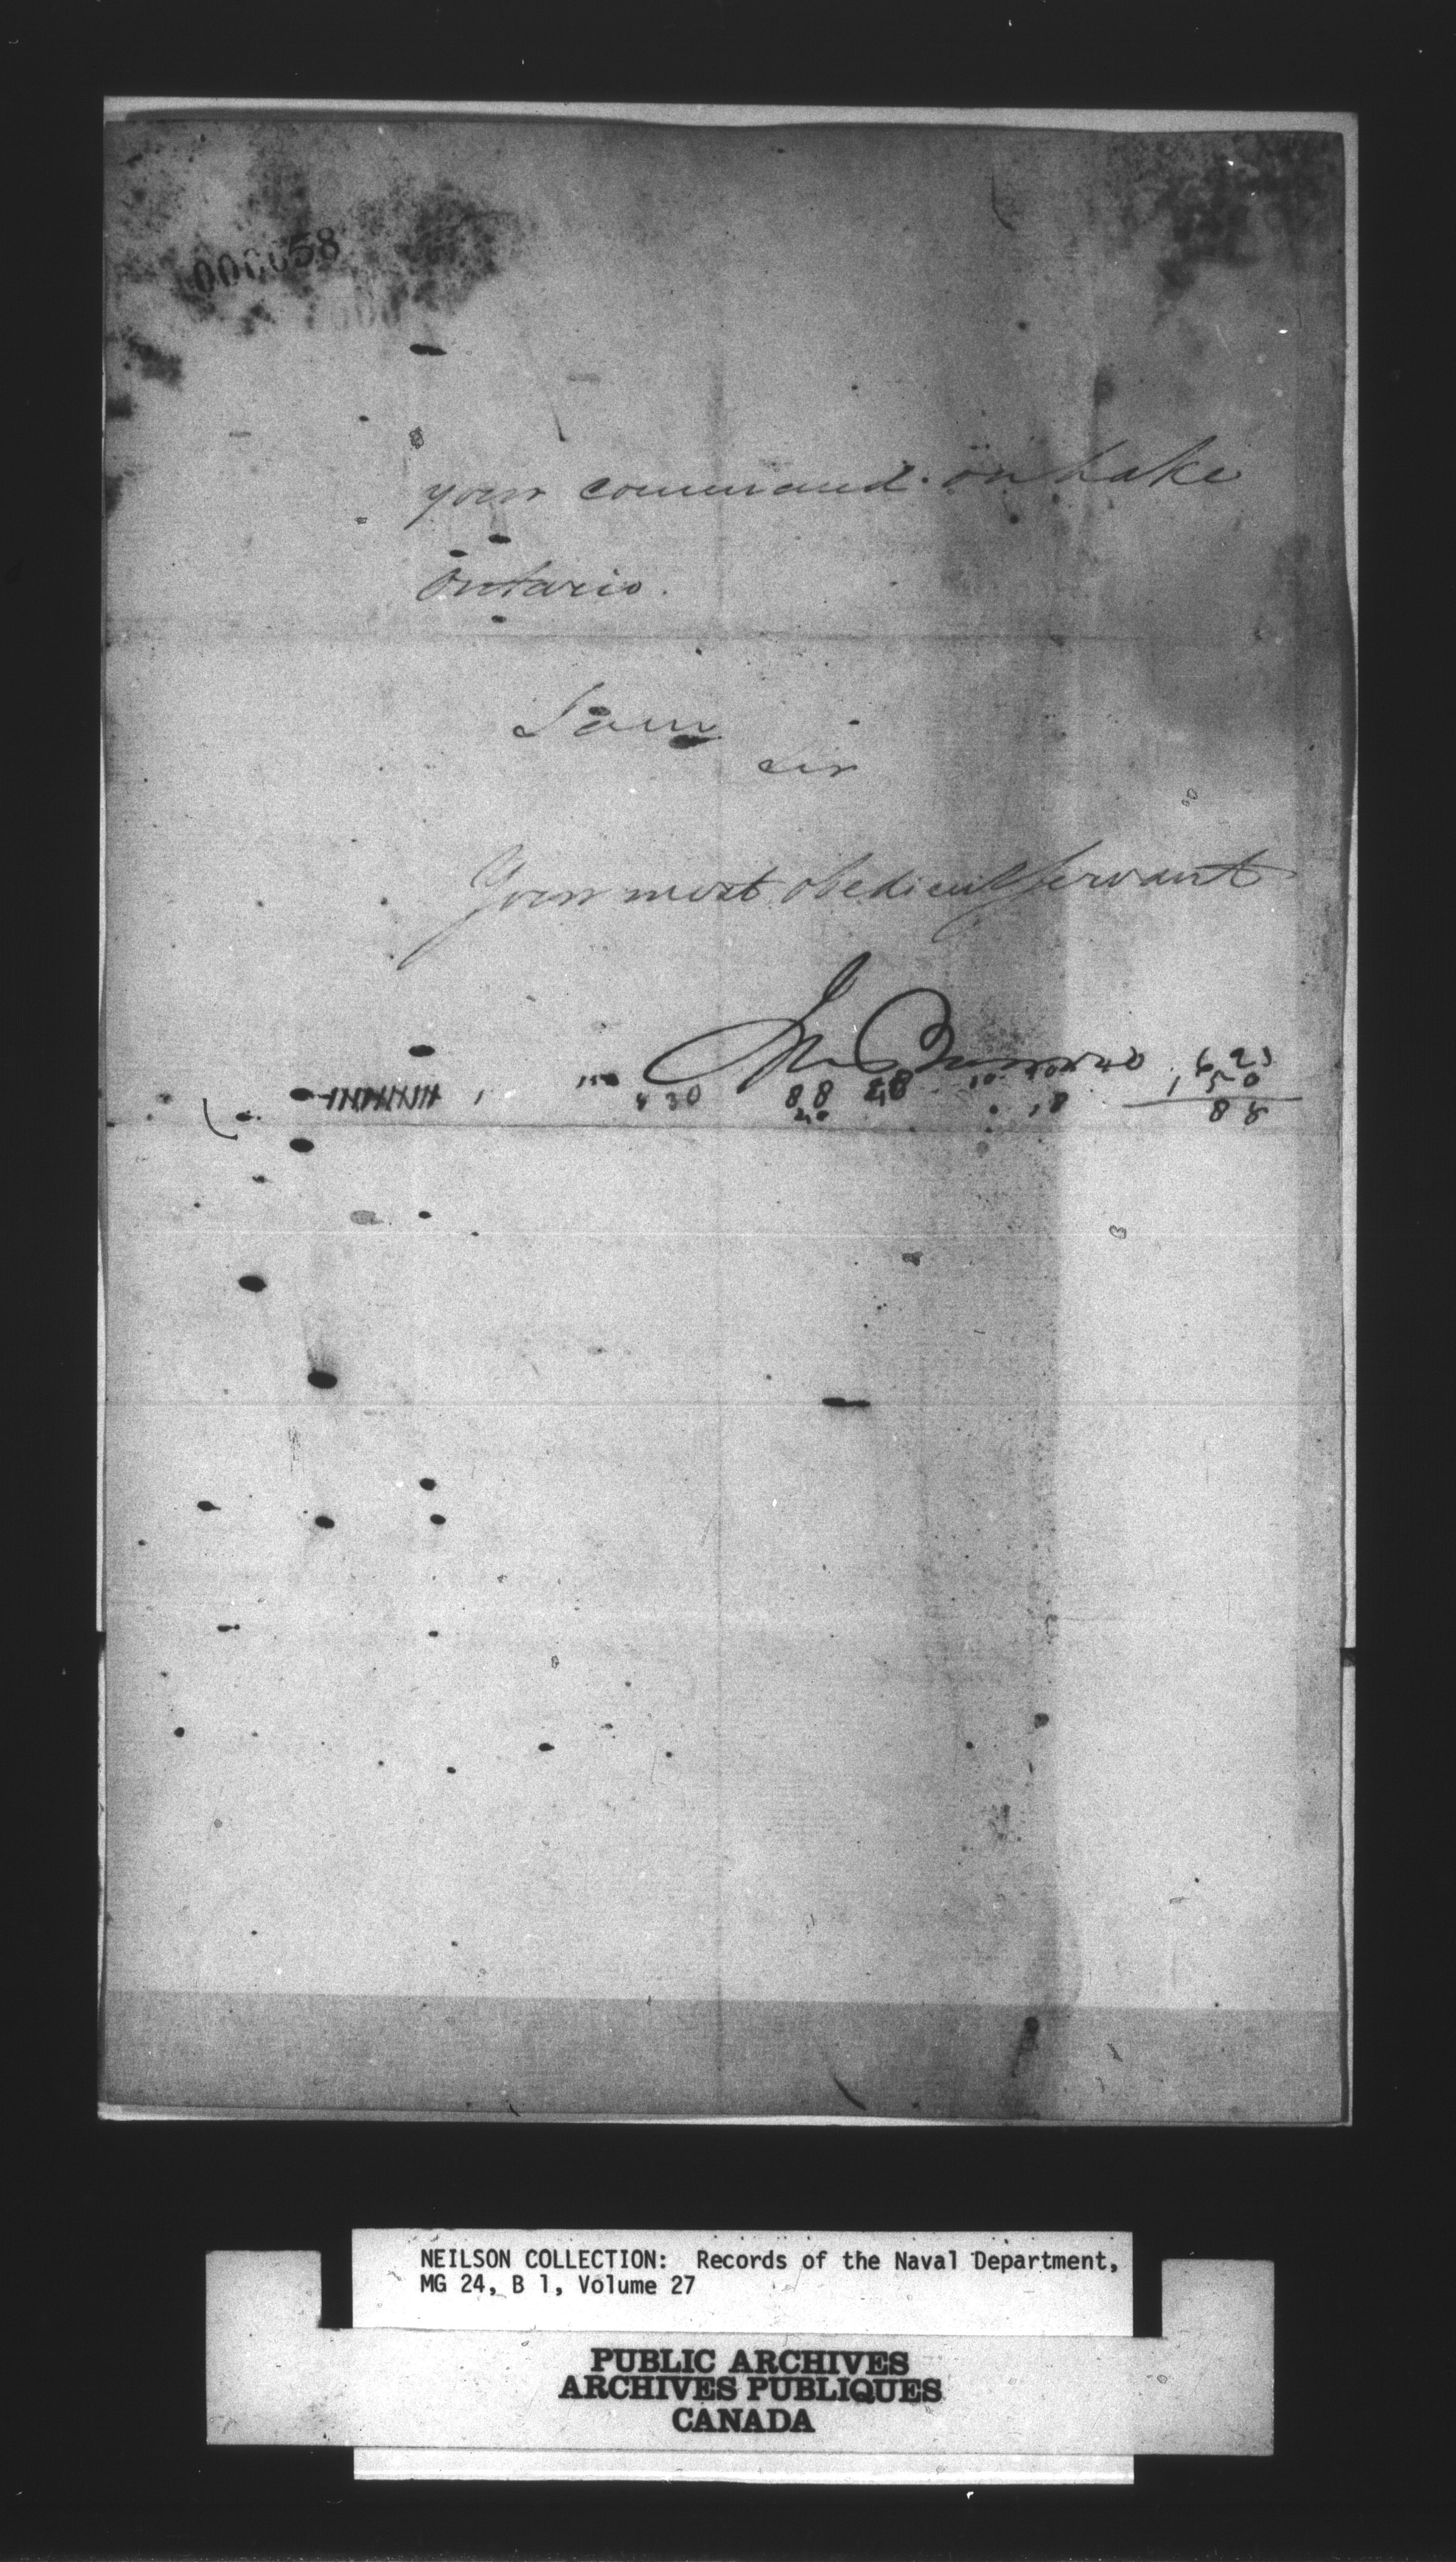 000058
your command on Lake
Ontario.
I am
Sir
Your most obedient Servant
625
150
430 88 28
20 18 88
NEILSON COLLECTION: Records of the Naval Department,
MG 24, B 1, Volume 27
PUBLIC ARCHIVES
ARCHIVES PUBLIQUES
CANADA